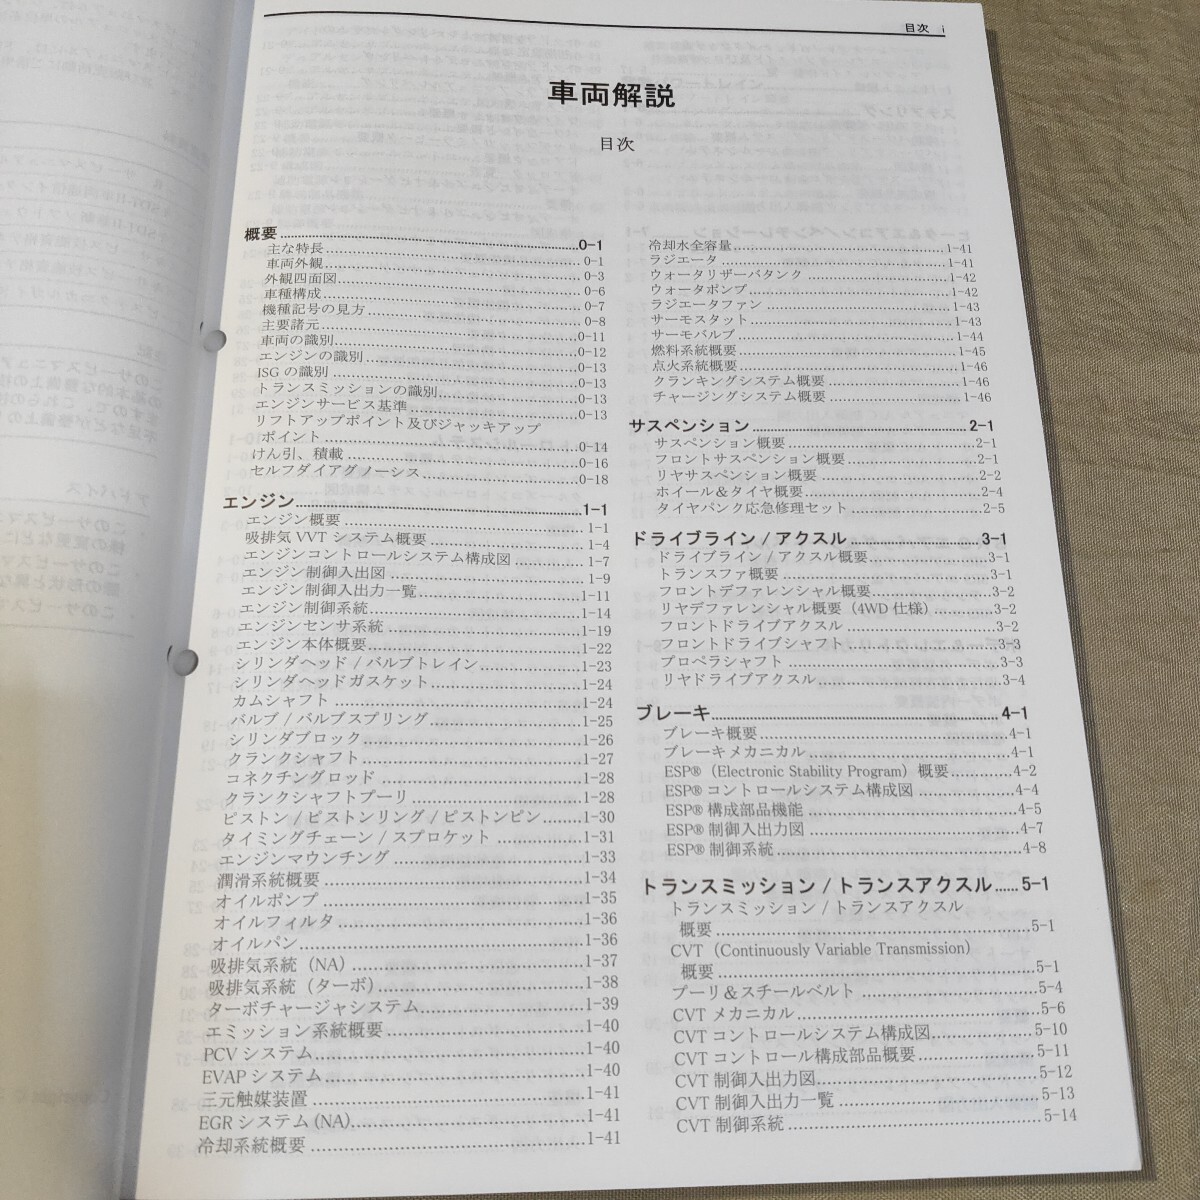 目次 i
車両解説
目次
概要 0-1
主な特長 0-1
車両外観 0-3
外観四面図 0-6
車種構成 0-7
機種記号の見方 0-8
主要諸元 0-11
車両の識別 0-12
エンジンの識別 0-13
ISG の識別 0-13
トランスミッションの識別 0-13
エンジンサービス基準 0-13
リフトアップポイント及びジャッキアップ
ポイント 0-14
けん引、積載 0-16
セルフダイアグノーシス 0-18
エンジン 1-1
エンジン概要 1-1
吸排気 VVT システム概要 1-4
エンジンコントロールシステム構成図 1-7
エンジン制御入出図 1-9
エンジン制御入出力一覧 1-11
エンジン制御系統 1-14
エンジンセンサ系統 1-19
エンジン本体概要 1-22
シリンダヘッド / バルブトレイン 1-23
シリンダヘッドガスケット 1-24
カムシャフト 1-24
バルブ / バルブスプリング 1-25
シリンダブロック 1-26
クランクシャフト 1-27
コネクチングロッド 1-28
クランクシャフトプーリ 1-28
ピストン / ピストンリング / ピストンピン 1-30
タイミングチェーン / スプロケット 1-31
エンジンマウンチング 1-33
潤滑系統概要 1-34
オイルポンプ 1-35
オイルフィルタ 1-36
オイルパン 1-36
吸排気系統（NA） 1-37
吸排気系統（ターボ） 1-38
ターボチャージャシステム 1-39
エミッション系統概要 1-40
PCV システム 1-40
EVAP システム 1-40
三元触媒装置 1-41
EGR システム (NA) 1-41
冷却系統概要 1-41
冷却水全容量 1-41
ラジエータ 1-41
ウォータリザーバタンク 1-42
ウォータポンプ 1-42
ラジエータファン 1-43
サーモスタット 1-43
サーモバルブ 1-44
燃料系統概要 1-45
点火系統概要 1-46
クランキングシステム概要 1-46
チャージングシステム概要 1-46
サスペンション 2-1
サスペンション概要 2-1
フロントサスペンション概要 2-1
リヤサスペンション概要 2-2
ホイール＆タイヤ概要 2-4
タイヤパンク応急修理セット 2-5
ドライブライン / アクスル 3-1
ドライブライン / アクスル概要 3-1
トランスファ概要 3-1
フロントデファレンシャル概要 3-2
リヤデファレンシャル概要（4WD 仕様） 3-2
フロントドライブアクスル 3-2
フロントドライブシャフト 3-3
プロペラシャフト 3-3
リヤドライブアクスル 3-4
ブレーキ 4-1
ブレーキ概要 4-1
ブレーキメカニカル 4-1
ESP®（Electronic Stability Program）概要 4-2
ESP® コントロールシステム構成図 4-4
ESP® 構成部品機能 4-5
ESP® 制御入出力図 4-7
ESP® 制御系統 4-8
トランスミッション / トランスアクスル 5-1
トランスミッション / トランスアクスル
概要 5-1
CVT（Continuously Variable Transmission）
概要 5-1
プーリ＆スチールベルト 5-4
CVT メカニカル 5-6
CVT コントロールシステム構成図 5-10
CVT コントロール構成部品概要 5-11
CVT 制御入出力図 5-12
CVT 制御入出力一覧 5-13
CVT 制御系統 5-14